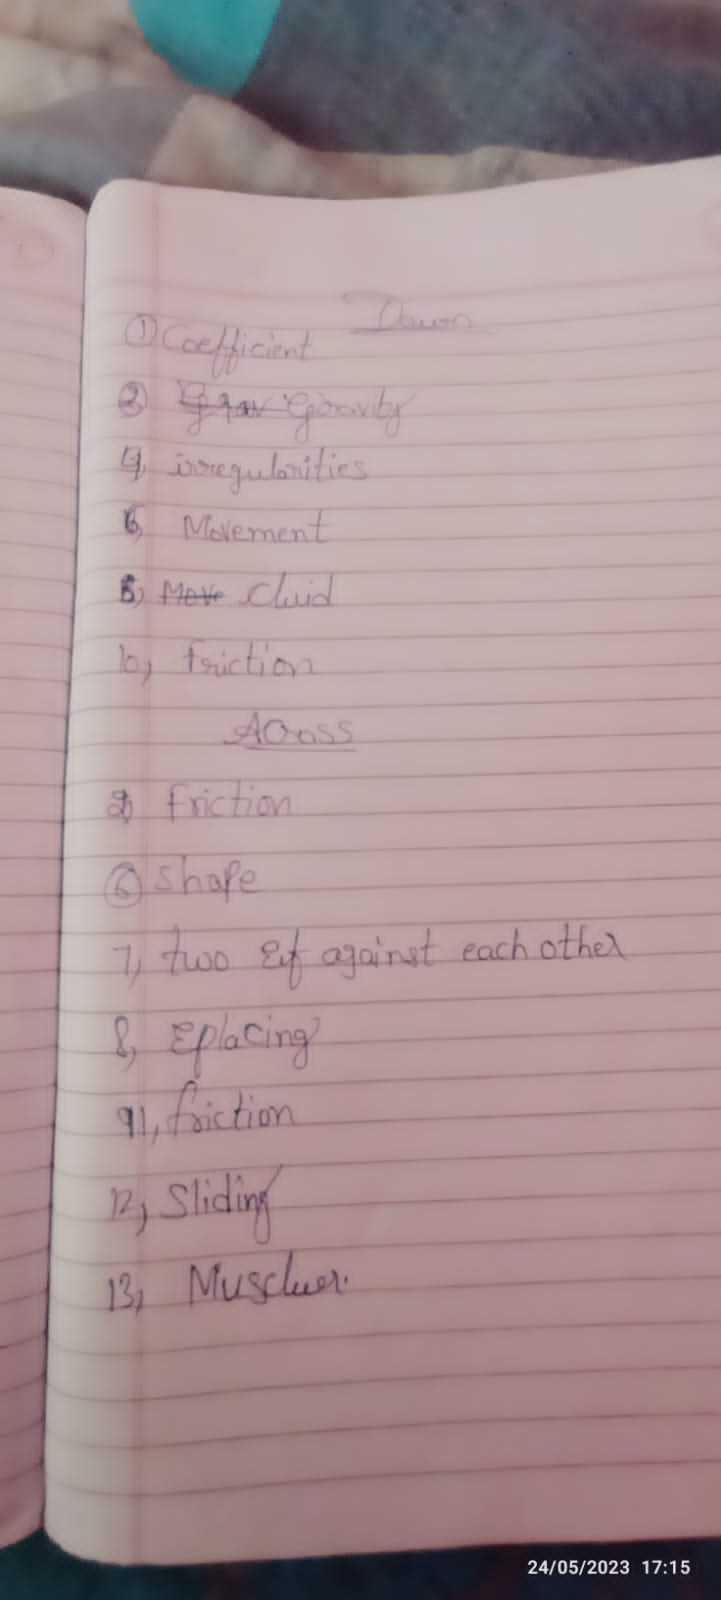 Down
① Coefficient
③ Grav Gravity
4, irregularities
6, Movement
5, Move Cluid
10, friction
Across
2) friction
⑥ Shape
7, two against each other
8, Eplacing
11, friction
12, Sliding
13,